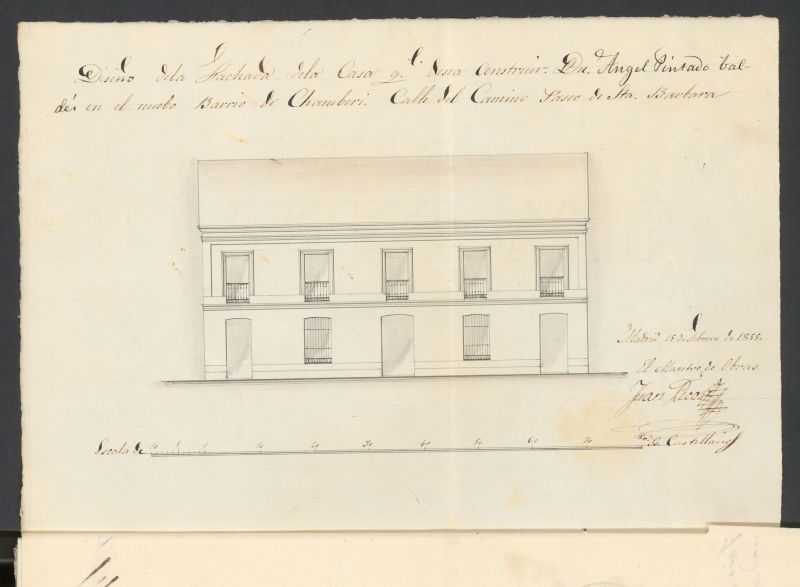 Diseño dela Fachada dela Casa q.e desea Construir. Dn. Angel Pintado Val-
dés en el nuebo Barrio de Chamberi. Calle del Camino Paseo de Sta. Barbara
Madrid 15 de Febrero de 1855.
El Maestro de Obras.
Juan
Escala de 10 5 0 10 20 30 40 50 60 70 80 Ps. Castellanos